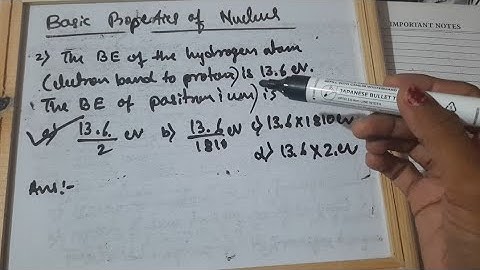 Basic Properties of Nucleus
IMPORTANT NOTES
2) The BE of the hydrogen atom
(electron band to proton) is 13.6 eV.
The BE of positronium) is
a) 13.6/2 eV b) 13.6/1810 eV c) 13.6 X 1810 eV
d) 13.6 X 2 eV
Ans:-
JAPANESE BULLET